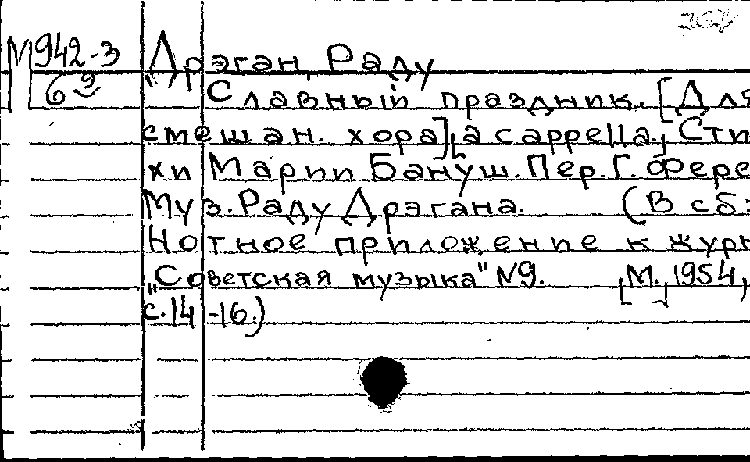 М942-3 Дрэган, Раду
6⁹ Славный праздник. [Для
смешан. хора], a cappella. Сти-
хи Марии Бануш. Пер. Г. Фере
Муз. Раду Дрэгана. (В сб.:
Нотное приложение к журн
„Советская музыка" №9. [М.], 1954,
с. 14-16.)